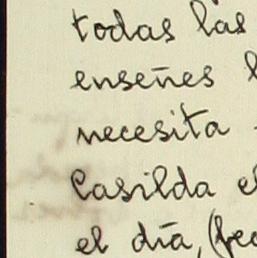 todas las
enseñes
necesita
Casilda el
el día, (fec